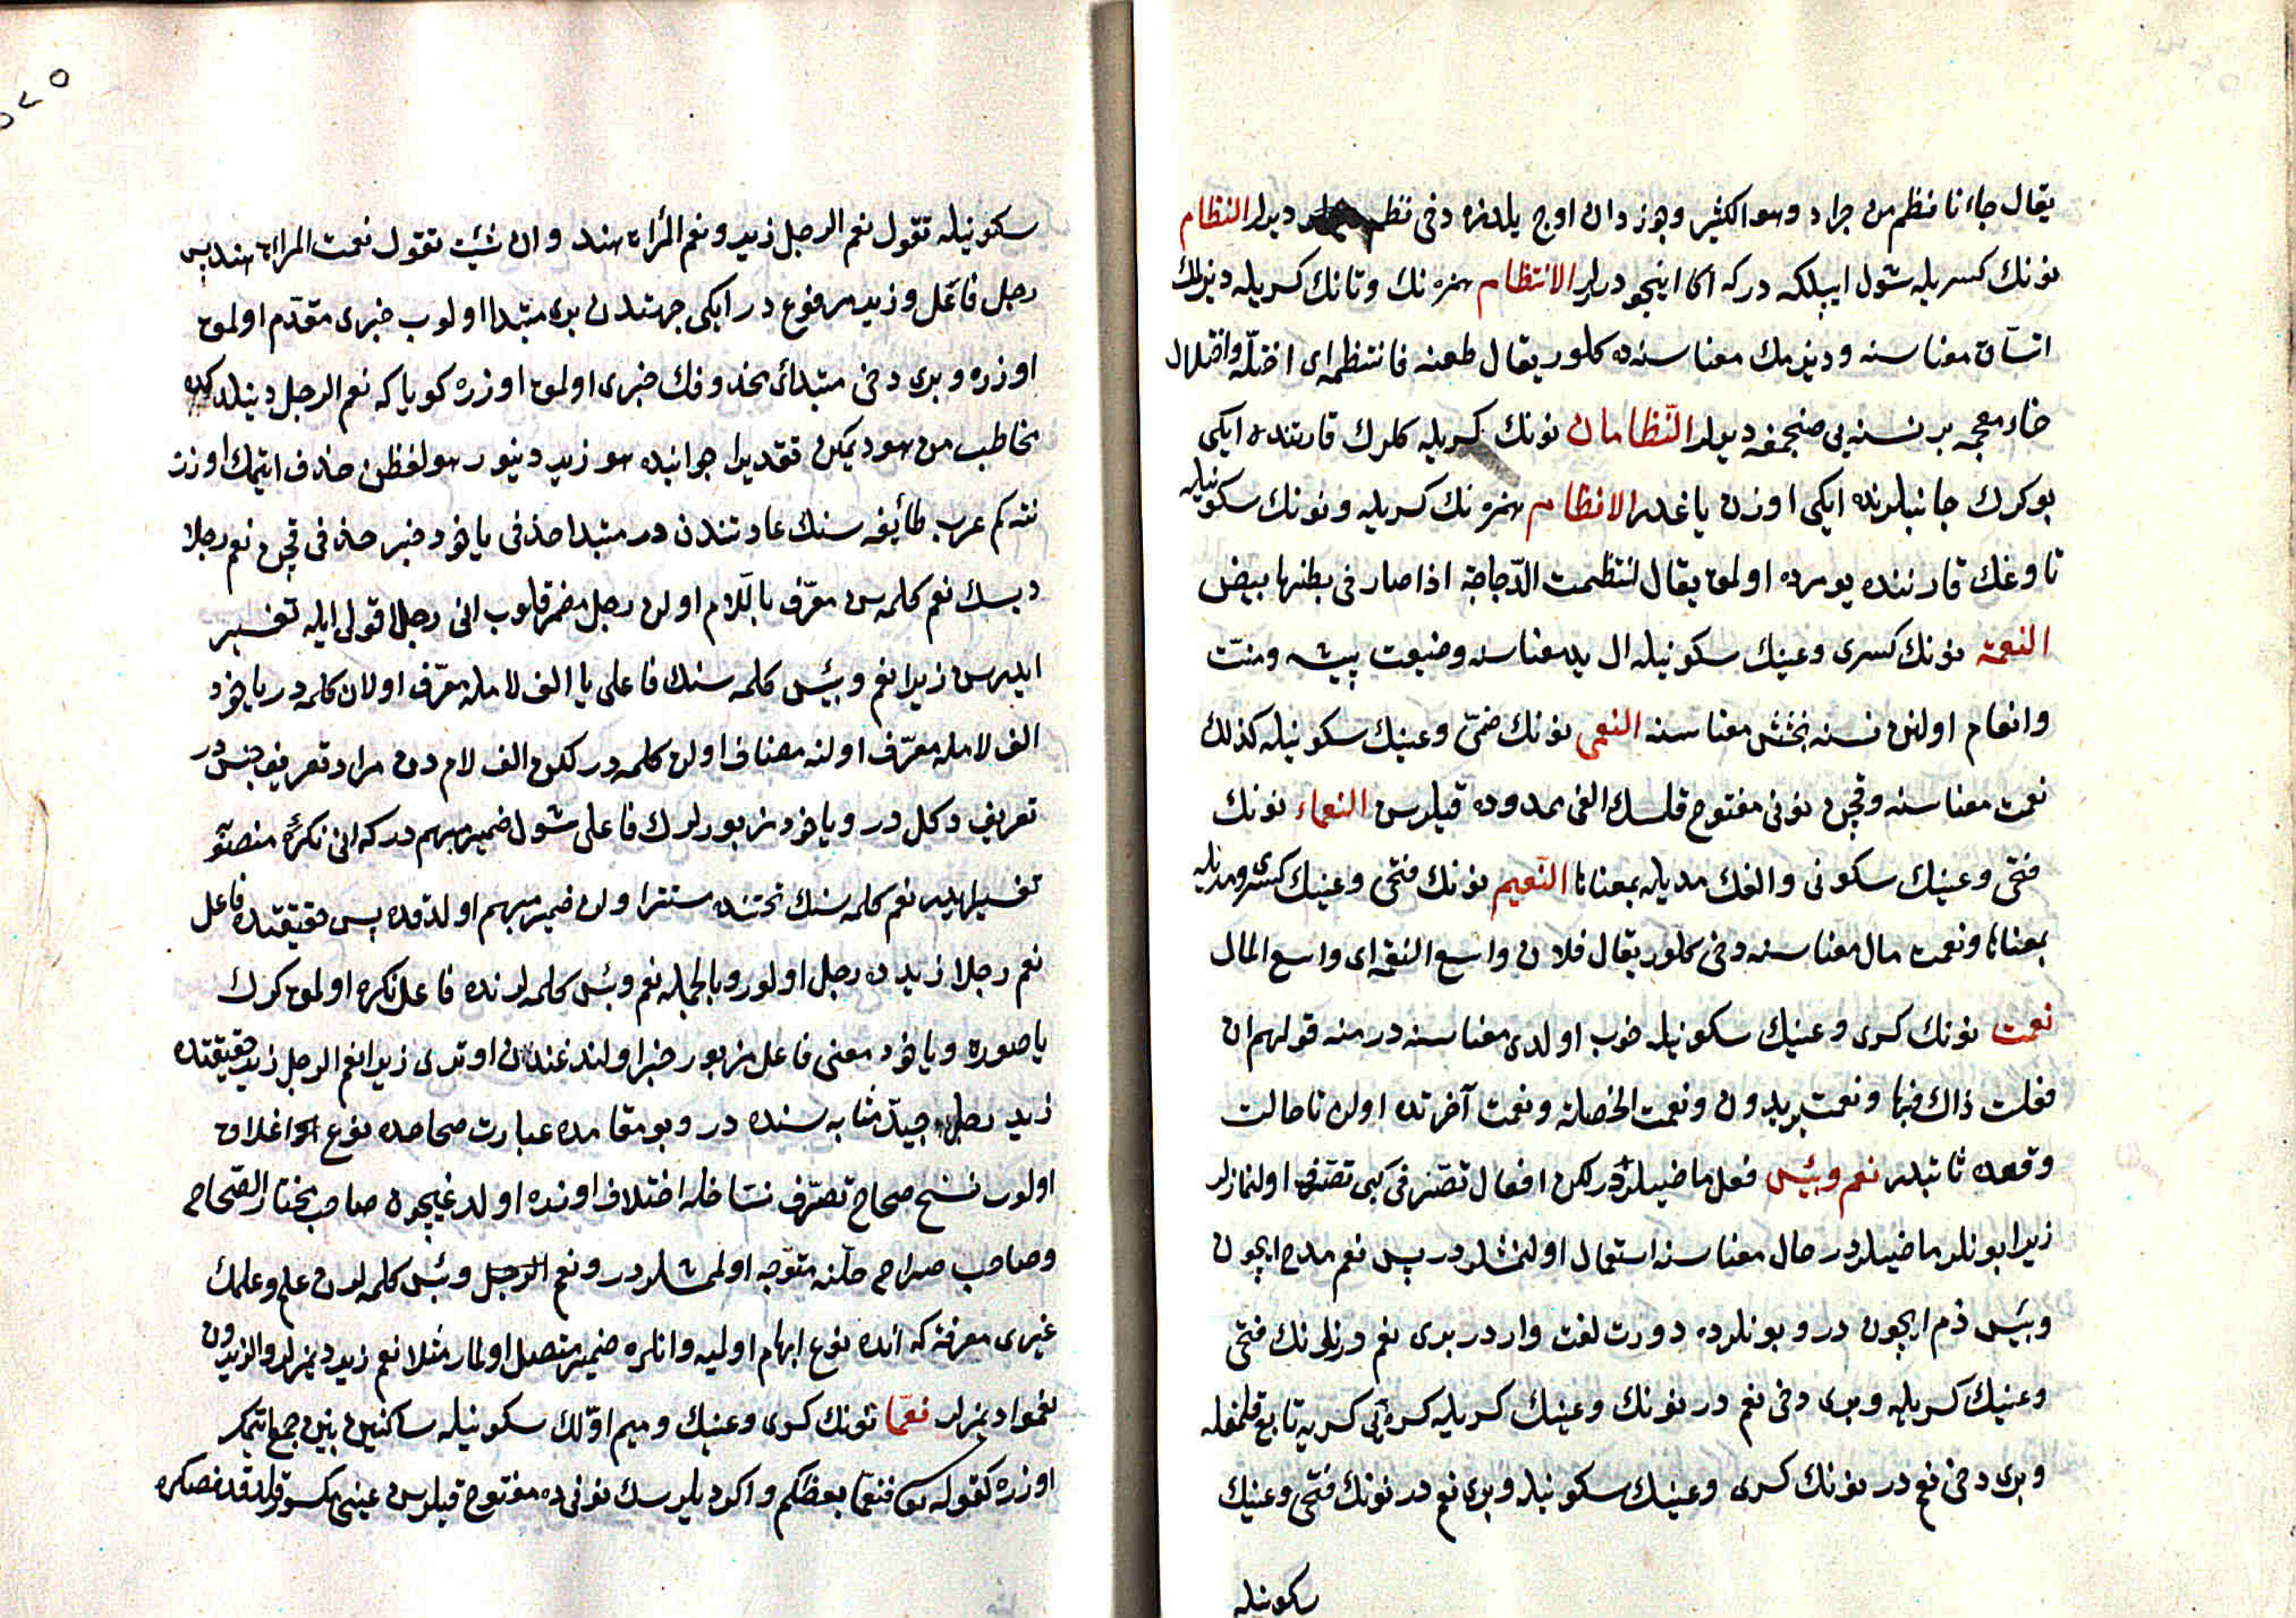 يقال جاءنا نظم من جراد وهو الكثير وجوزادن اوج يلدزه دخى نظم ديرلر النظام
نونك كسريله شول ايپلكه دركه اكا اينجو ديزلر الانتظام همزه نك وتانك كسريله ديزلمك
اتساق معناسنه وديزمك معناسنه ده كلور يقال طعنه فانتظمه اى اختلّه واختلال
خاء معجمه بر نسنه يى صنجمغه ديرلر النّظامان نونك كسريله كلرك قارننده ايكى
بوكرك جانبلرنده ايكى اوزن ياغدر الانظام همزه نك كسريله ونونك سكونيله
تاوغك قارننده يومرده اولمق يقال انتظمت الدّجاجة اذا صار فى بطنها بيض
النعمة نونك كسرى وعينك سكونيله ال يد معناسنه وضيعت پيشه ومنّت
وانعام اولنن نسنه بخشش معناسنه النعمى نونك ضمّى وعينك سكونيله كذلك
نعمت معناسنه وقچن نونى مفتوح قلسك الفى ممدوده قيلرسن النعماء نونك
فتحى وعينك سكونى والفك مديله بمعناها النّعيم نونك فتحى وعينك كسرى ومديله
بمعناها ونعمت مال معناسنه دخى كلور يقال فلان واسع النعمة اى واسع المال
نعمت نونك كسرى وعينك سكونيله خوب اولدى معناسنه در منه قولهم ان
فعلت ذاك فبها ونعمت يريدون ونعمت الخصلة ونعمت آخرنده اولن تا حالت
وقفده ثابتدر نعم وبئس فعل ماضيلردر لكن افعال تصرّفى كبى تصرّف اولنمازلر
زيرا بونلر ماضيلردر حال معناسنه استعمال اولنمشلردر پس نعم مدح ايچون
وبئس ذم ايچون در وبونلرده دورت لغت واردر برى نعم درنونك فتحى
وعينك كسريله وبرى دخى نعم در نونك وعينك كسريله كسره يى كسريه تابع قلمغله
وبرى دخى نعم در نونك كسرى وعينك سكونيله وبرى نعم در نونك فتحى وعينك
سكونيله
سكونيله تقول نعم الرجل زيد ونعم المرأة هند وان شئت تقول نعمت المرأة هند پس
رجل فاعل وزيد مرفوع در ايكى جهتدن برى مبتدا اولوب خبرى مقدّم اولمق
اوزره وبرى دخى مبتداى محذوفك خبرى اولمق اوزره كويا كه نعم الرجل دينلدكده
مخاطب من هو ديمكن تقديرا جوابنده هو زيد دينور هو لفظن حذف ايتمك اوزره
نته كم عرب طائفه سنك عادتندن در مبتدا حذفى ياخود خبر حذفى قچن نعم رجلا
ديسك نعم كلمه سن معرّف باللام اولن رجل مضمر قلوب انى رجلا قولى ايله تفسير
ايدرسن زيرا نعم وبئس كلمه سنك فاعلى يا الف لامله معرّف اولان كلمه در ياخود
الف لامله معرّف اولنه مضاف اولن كلمه در لكن الف لام دن مراد تعريف جنس در
تعريف دكل در وياخود مزبورلرك فاعلى شول ضمير مبهم دركه انى نكره منصوبه
تفسير ايدر نعم كلمه سنك تحتنده مستتر اولن ضمير مبهم اولدقده پس حقيقتده فاعل
نعم رجلا زيد ده رجل اولور وبالجمله نعم وبئس كلمه لرنده فاعل نكره اولمق كرك
يا صورة وياخود معنى فاعل مزبور خبر اولندغندن اوترى زيرا نعم الرجل زيد حقيقتده
زيد رجل جيّد مثابه سنده در وبو مقامده عبارت صحاحده نوع اغلاق
اولوب نسخ صحاح تصرّف نسّاخله اختلاف اوزره اولدغيچون صاحب مختار الصّحاح
وصاحب صراح حلّنه متوجه اولمشلردر ونعم الرجل وبئس كلمه لرن علم وعلمك
غيرى معرفه كه انده نوع ابهام اوليه وانلره ضمير متصل اولمز مثلا نعم زيد ديمزلر والزيدون
نعموا ديمزلر نعمّا نونك كسرى وعينك وميم اوّلك سكونيله ساكنين بينن جمع ايتمك
اوزره كقوله تعالى فنعمّا يعظكم واكر ديلرسك نونى ده مفتوح قيلرسن عينى مكسور قلدقدنصكره